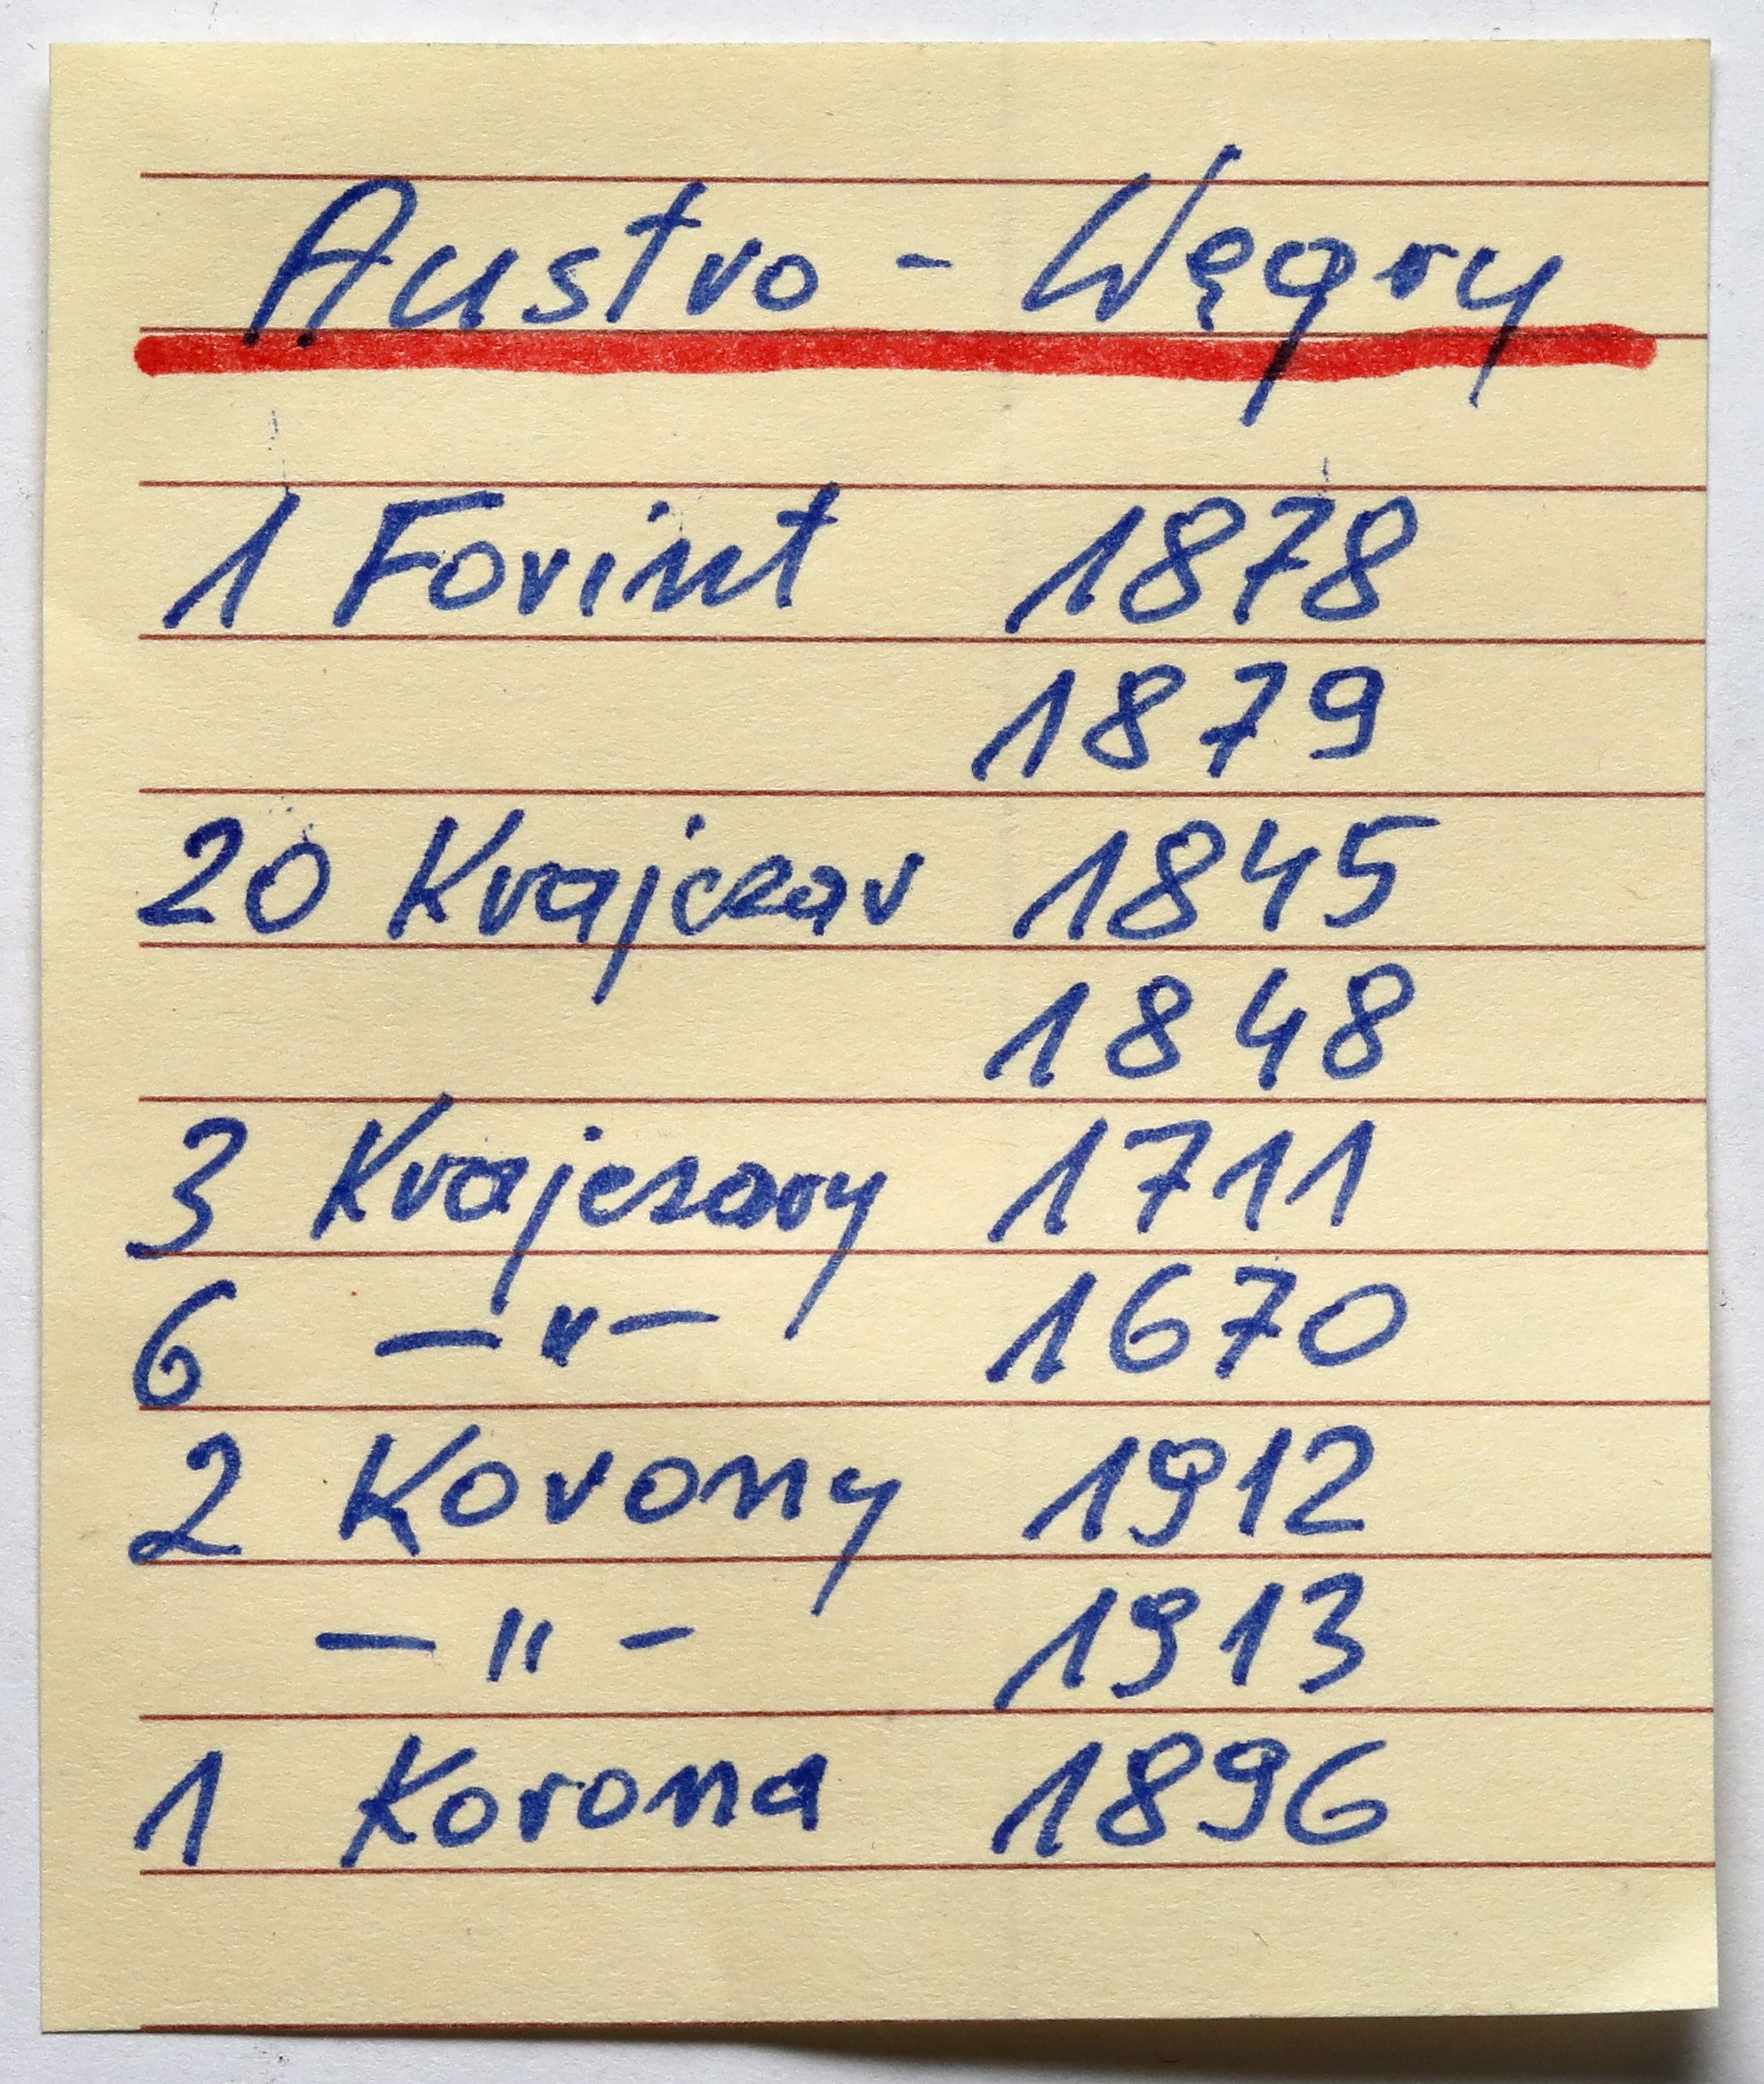 Austro - Węgry
1 Forint 1878
1879
20 Krajczar 1845
1848
3 Krajczary 1711
6 — " — 1670
2 Korony 1912
— " — 1913
1 Korona 1896